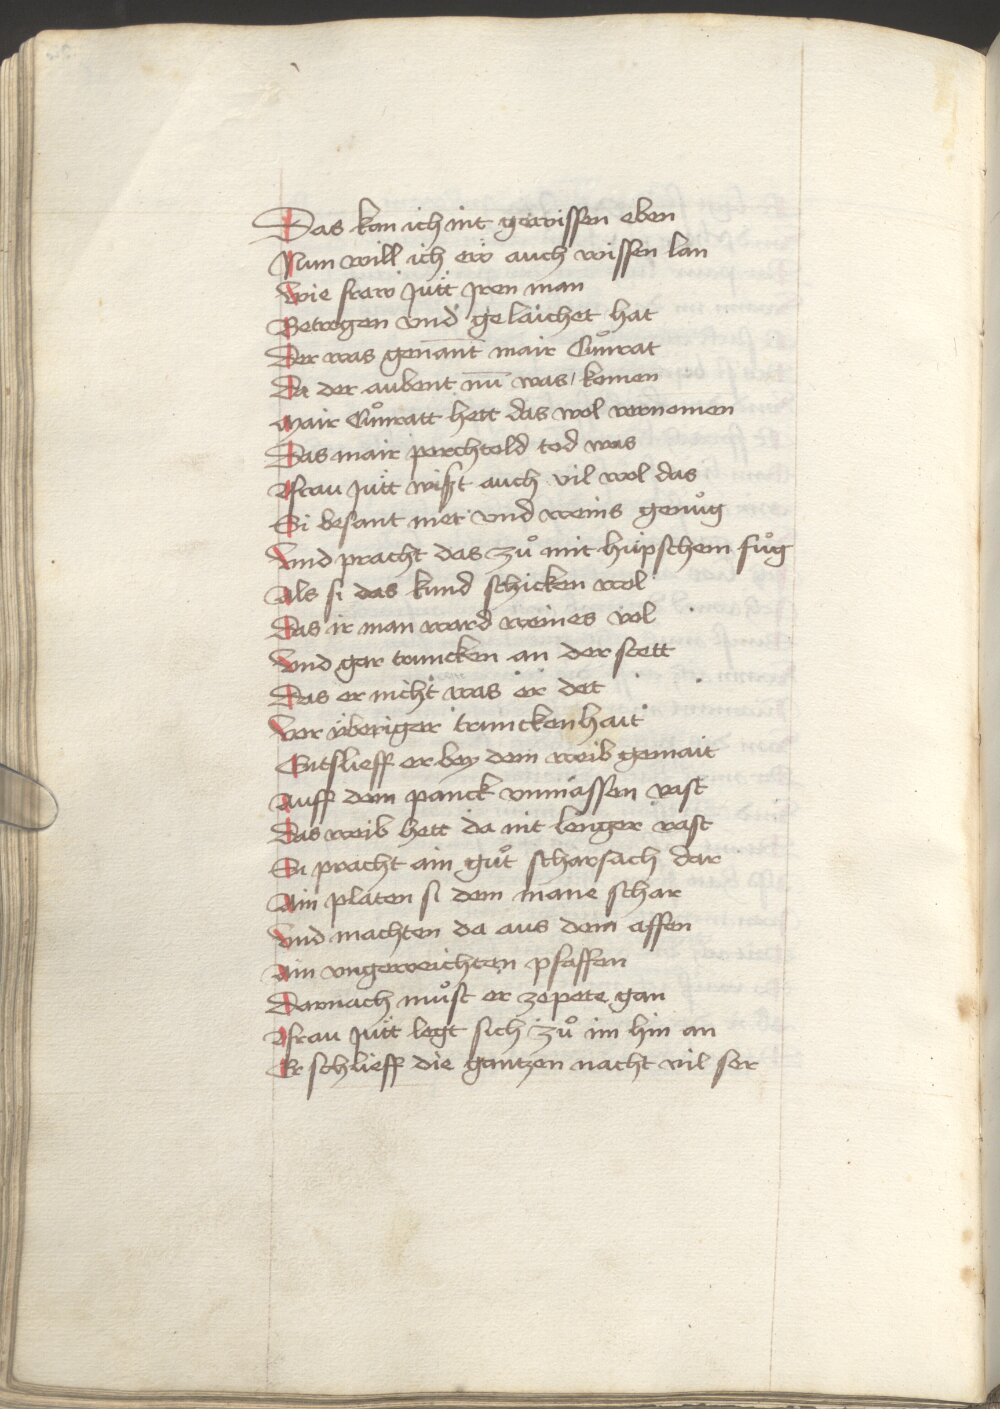 Das kan ich nit gewissen eben
Nun will ich eẅ auch wissen lan
Wie fraw Jütt Jren man
Betrogen vnd gelaichet hat
Der was genānt mair Cůnrat
Da der aubent nū was / komen
Mair Cůnratt hett das wol vernomen
Das mair perchtold tod was
Frau Jütt wißt auch vil wol das
Si besant met vnd weins genůg
Vnd pracht das zů mit hüpschem fůg
Als si das kund schicken wol
Das ir man ward weines vol
Vnd gar truncken an der stett
Das er nicht was er det
Vor v̈beriger trunckenhait
Entslieff er bey dem weib gemait
Auff dem panck vnmassen vast
Das weib hett da nit lenger rast
Si pracht ain gůt scharsach dar
Ain platen si dem mane schar
Vnd machten da aus dem affen
Ain vngeweichten pfaffen
Darnach můst er ze pete gan
Frau Jütt legt sich zů im hin an
Er schlieff die gantzen nacht vil ser